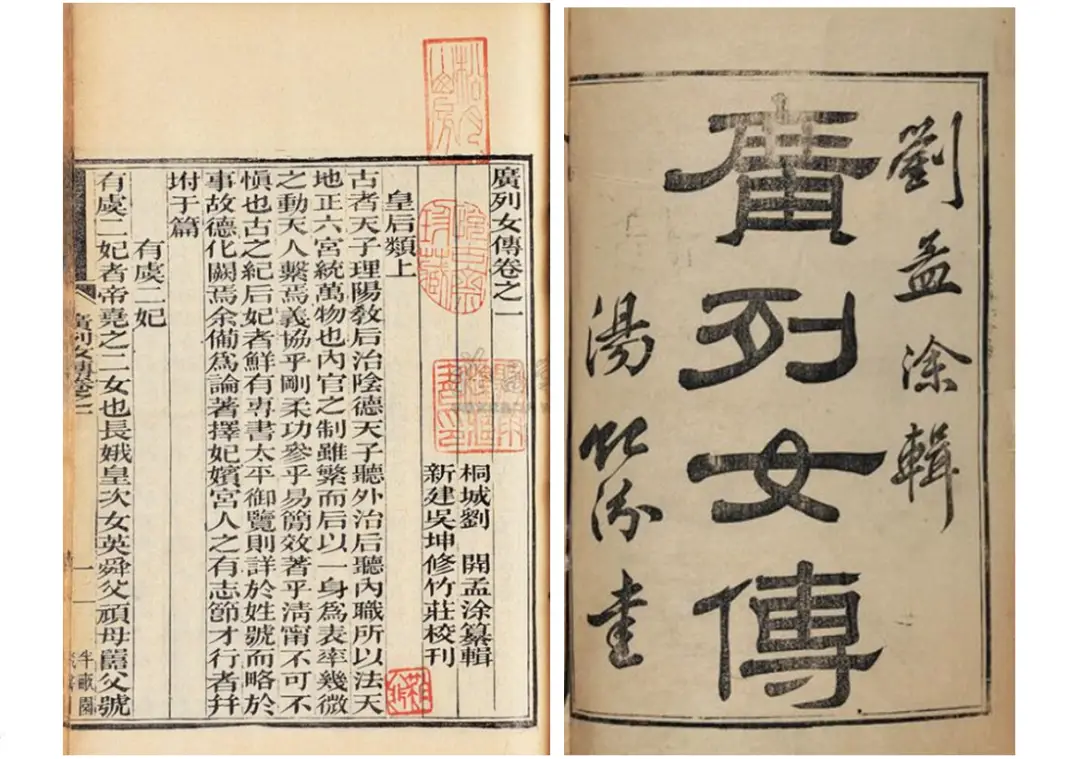 劉孟涂輯
廣列女傳
湯貽汾書
廣列女傳卷之一
桐城劉 開孟涂纂輯
新建吳坤修竹莊校刊
皇后類上
古者天子理陽敎后治陰德天子聽外治后聽內職所以法天
地正六宮統萬物也內官之制雖繁而后以一身爲表率幾微
之動天人繫焉義協乎剛柔功參乎易簡效著乎淸甯不可不
愼也古之紀后妃者鮮有專書太平御覽則詳於姓號而略於
事故德化闕焉余備爲論著擇妃嬪宮人之有志節才行者幷
坿于篇
有虞二妃
有虞二妃者帝堯之二女也長娥皇次女英舜父頑母嚚父號
廣列女傳卷之一
一
半畝園